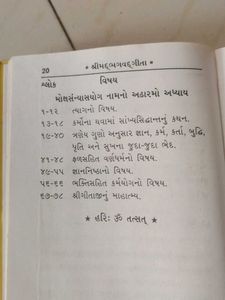 20
★ શ્રીમદ્ભગવદ્ગીતા ★
શ્લોક વિષય
મોક્ષસંન્યાસયોગ નામનો અઢારમો અધ્યાય
૧-૧૨ ત્યાગનો વિષય.
૧૩-૧૮ કર્મોના થવામાં સાંખ્યસિદ્ધાન્તનું કથન.
૧૯-૪૦ ત્રણેય ગુણો અનુસાર જ્ઞાન, કર્મ, કર્તા, બુદ્ધિ,
ધૃતિ અને સુખના જુદા-જુદા ભેદ.
૪૧-૪૮ ફળસહિત વર્ણધર્મનો વિષય.
૪૯-૫૫ જ્ઞાનનિષ્ઠાનો વિષય.
૫૬-૬૬ ભક્તિસહિત કર્મયોગનો વિષય.
૬૭-૭૮ શ્રીગીતાજીનું માહાત્મ્ય.
★ હરિ: ૐ તત્સત્ ★